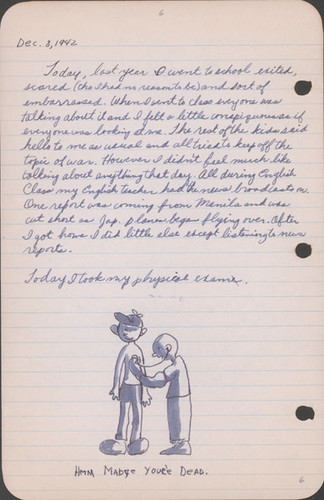 6
Dec. 8, 1942
Today, last year I went to school exited,
scared (tho I had no reason to be) and sort of
embarrassed. When I went to class everyone was
talking about it and I felt a little conspicuous as if
everyone was looking at me. The rest of the kids said
hello to me as usual and all tried to keep off the
topic of war. However I didn't feel much like
talking about anything that day. All during English
Class my English teacher had the news broadcasts on.
One report was coming from Manila and was
cut short as Jap. planes began flying over. After
I got home I did little else except listening to news
reports.
Today I took my physical exams.
Hmm Maybe You're Dead.
6